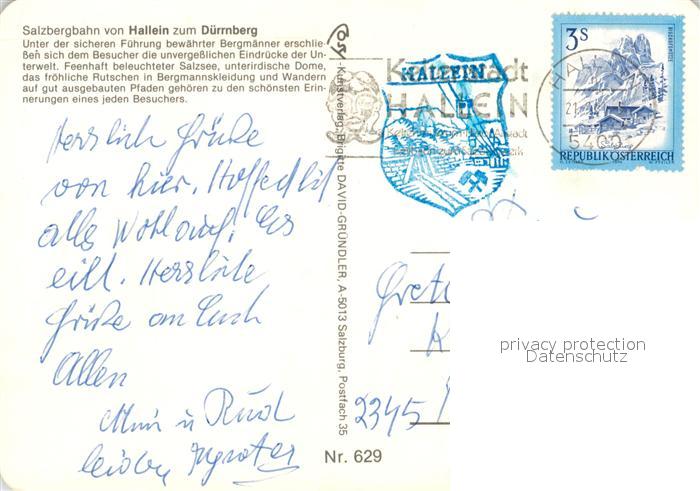 Salzbergbahn von Hallein zum Dürrnberg
Unter der sicheren Führung bewährter Bergmänner erschlie-
ßen sich dem Besucher die unvergeßlichen Eindrücke der Un-
terwelt. Feenhaft beleuchteter Salzsee, unterirdische Dome,
das fröhliche Rutschen in Bergmannskleidung und Wandern
auf gut ausgebauten Pfaden gehören zu den schönsten Erin-
nerungen eines jeden Besuchers.
Herzliche Grüße
von hier. Hoffentlich
alles Wohlauf. Es
eilt. Herzliche
Grüße an Euch
Allen
Mimi u Rud
-Kunstverlag, Brigitte DAVID-GRÜNDLER, A-5013 Salzburg, Postfach 35
Nr. 629
HALLEIN
HALLEIN
HALLEIN
5400
3S
REPUBLIK ÖSTERREICH
Grete
2345
privacy protection
Datenschutz